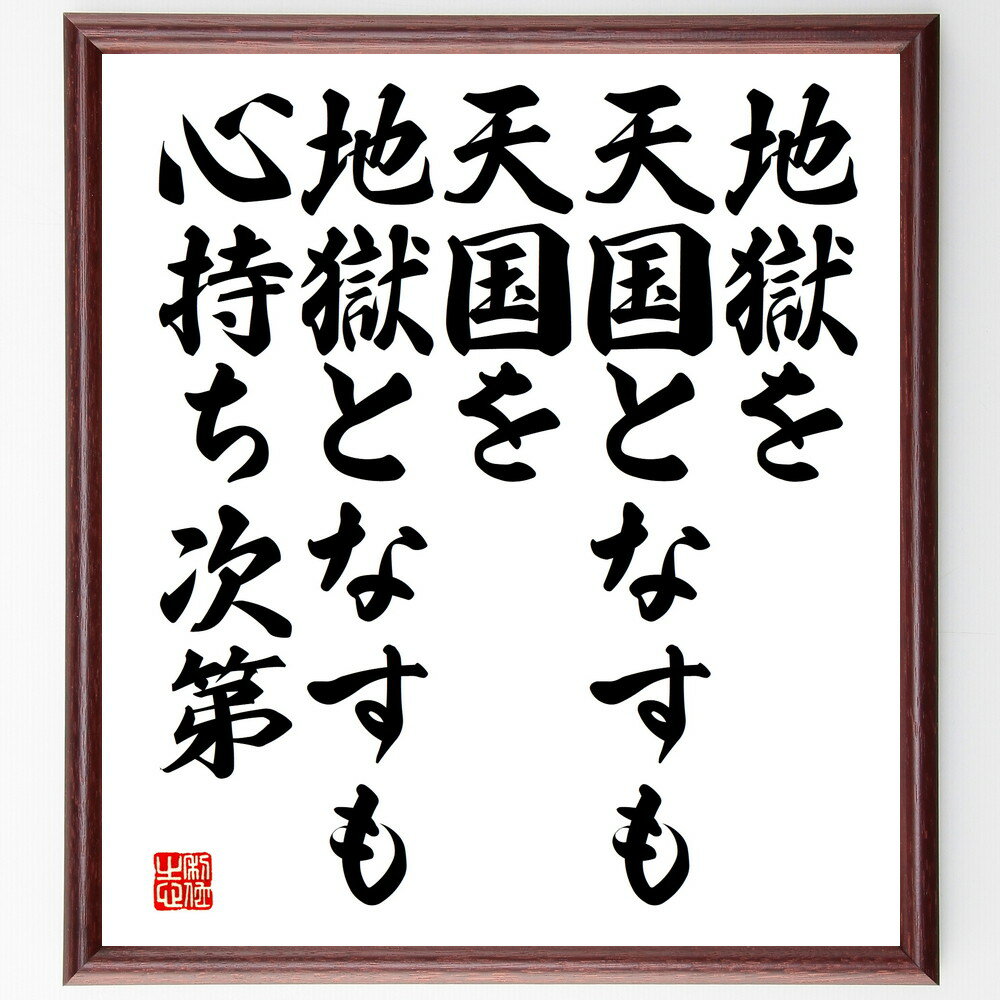 地獄を
天国となすも
天国を
地獄となすも
心持ち次第